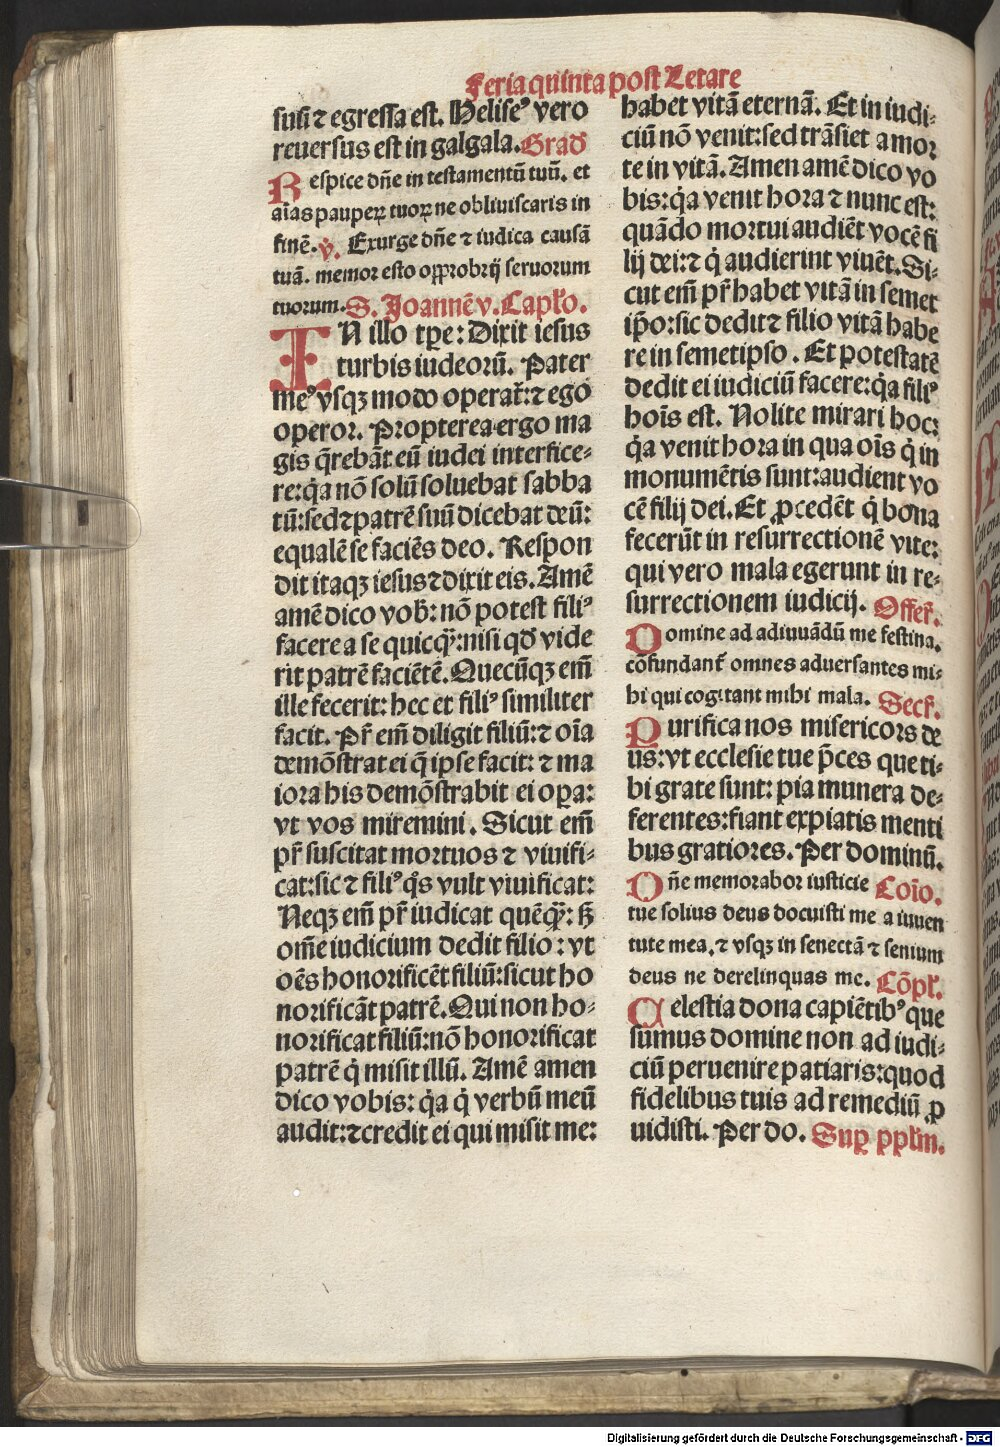 Feria quinta post Letare
suū ⁊ egressa est. Heliseꝰ vero
reuersus est in galgala. Grad̄
Respice dn̄e in testamentū tuū. et
aīas pauperꝝ tuoꝝ ne obliuiscaris in
finē. v̄. Exurge dn̄e ⁊ iudica causā
tuā. memor esto opprobrij seruorum
tuorum. S. Joannē v. Capło.
IN illo tꝑe: Dixit iesus
turbis iudeorū. Pater
meꝰ vsqꝫ modo operat᷑: ⁊ ego
operor. Propterea ergo ma
gis q̄rebāt eū iudei interfice-
re: q̇a nō solū soluebat sabba
tū: sed ⁊ patrē suū dicebat deū:
equalē se faciēs deo. Respon
dit itaqꝫ iesus ⁊ dixit eis. Amē
amē dico vob̄: nō potest filiꝰ
facere a se quicq̄ꝫ: nisi qd̄ vide
rit patrē faciētē. Quecūqꝫ em̄
ille fecerit: hec et filiꝰ similiter
facit. Pr̄ em̄ diligit filiū: ⁊ oīa
demōstrat ei q̄ ipse facit: ⁊ ma
iora his demōstrabit ei oꝑa:
vt vos miremini. Sicut em̄
pr̄ suscitat mortuos ⁊ viuifi-
cat: sic ⁊ filiꝰ q̇s vult viuificat:
Neqꝫ em̄ pr̄ iudicat quēq̄ꝫ: sꝫ
om̄e iudicium dedit filio: vt
oēs honorificēt filiū: sicut ho
norificāt patrē. Qui non ho-
norificat filiū: nō honorificat
patrē q̇ misit illū. Amē amen
dico vobis: q̇a q̇ verbū meū
audit: ⁊ credit ei qui misit me:
habet vitā eternā. Et in iudi-
ciū nō venit: sed trāsiet a mor
te in vitā. Amen amē dico vo
bis: q̇a venit hora ⁊ nunc est:
quādo mortui audiēt vocē fi
lij dei: ⁊ q̇ audierint viuēt. Si-
cut em̄ pr̄ habet vitā in semet
ip̄o: sic dedit ⁊ filio vitā habe
re in semetipso. Et potestatē
dedit ei iudiciū facere: q̇a filiꝰ
hoīs est. Nolite mirari hoc:
q̇a venit hora in qua oīs q̇ in
monumētis sunt: audient vo
cē filij dei. Et ꝓcedēt q̇ bona
fecerūt in resurrectionē vite:
qui vero mala egerunt in re-
surrectionem iudicij. Offer̄.
Domine ad adiuuādū me festina.
cōfundant᷑ omnes aduersantes mi-
hi qui cogitant mihi mala. Secr̄.
Purifica nos misericors de
us: vt ecclesie tue p̄ces que ti-
bi grate sunt: pia munera de-
ferentes: fiant expiatis menti
bus gratiores. Per dominū.
Dn̄e memorabor iusticie Coīo.
tue solius deus docuisti me a iuuen
tute mea. ⁊ vsqꝫ in senectā ⁊ senium
deus ne derelinquas me. Cōpl̄.
Celestia dona capiētibꝰ que
sumus domine non ad iudi-
ciū peruenire patiaris: quod
fidelibus tuis ad remediū ꝓ
uidisti. Per do. Suꝑ ppl̄m.
Digitalisierung gefördert durch die Deutsche Forschungsgemeinschaft - DFG